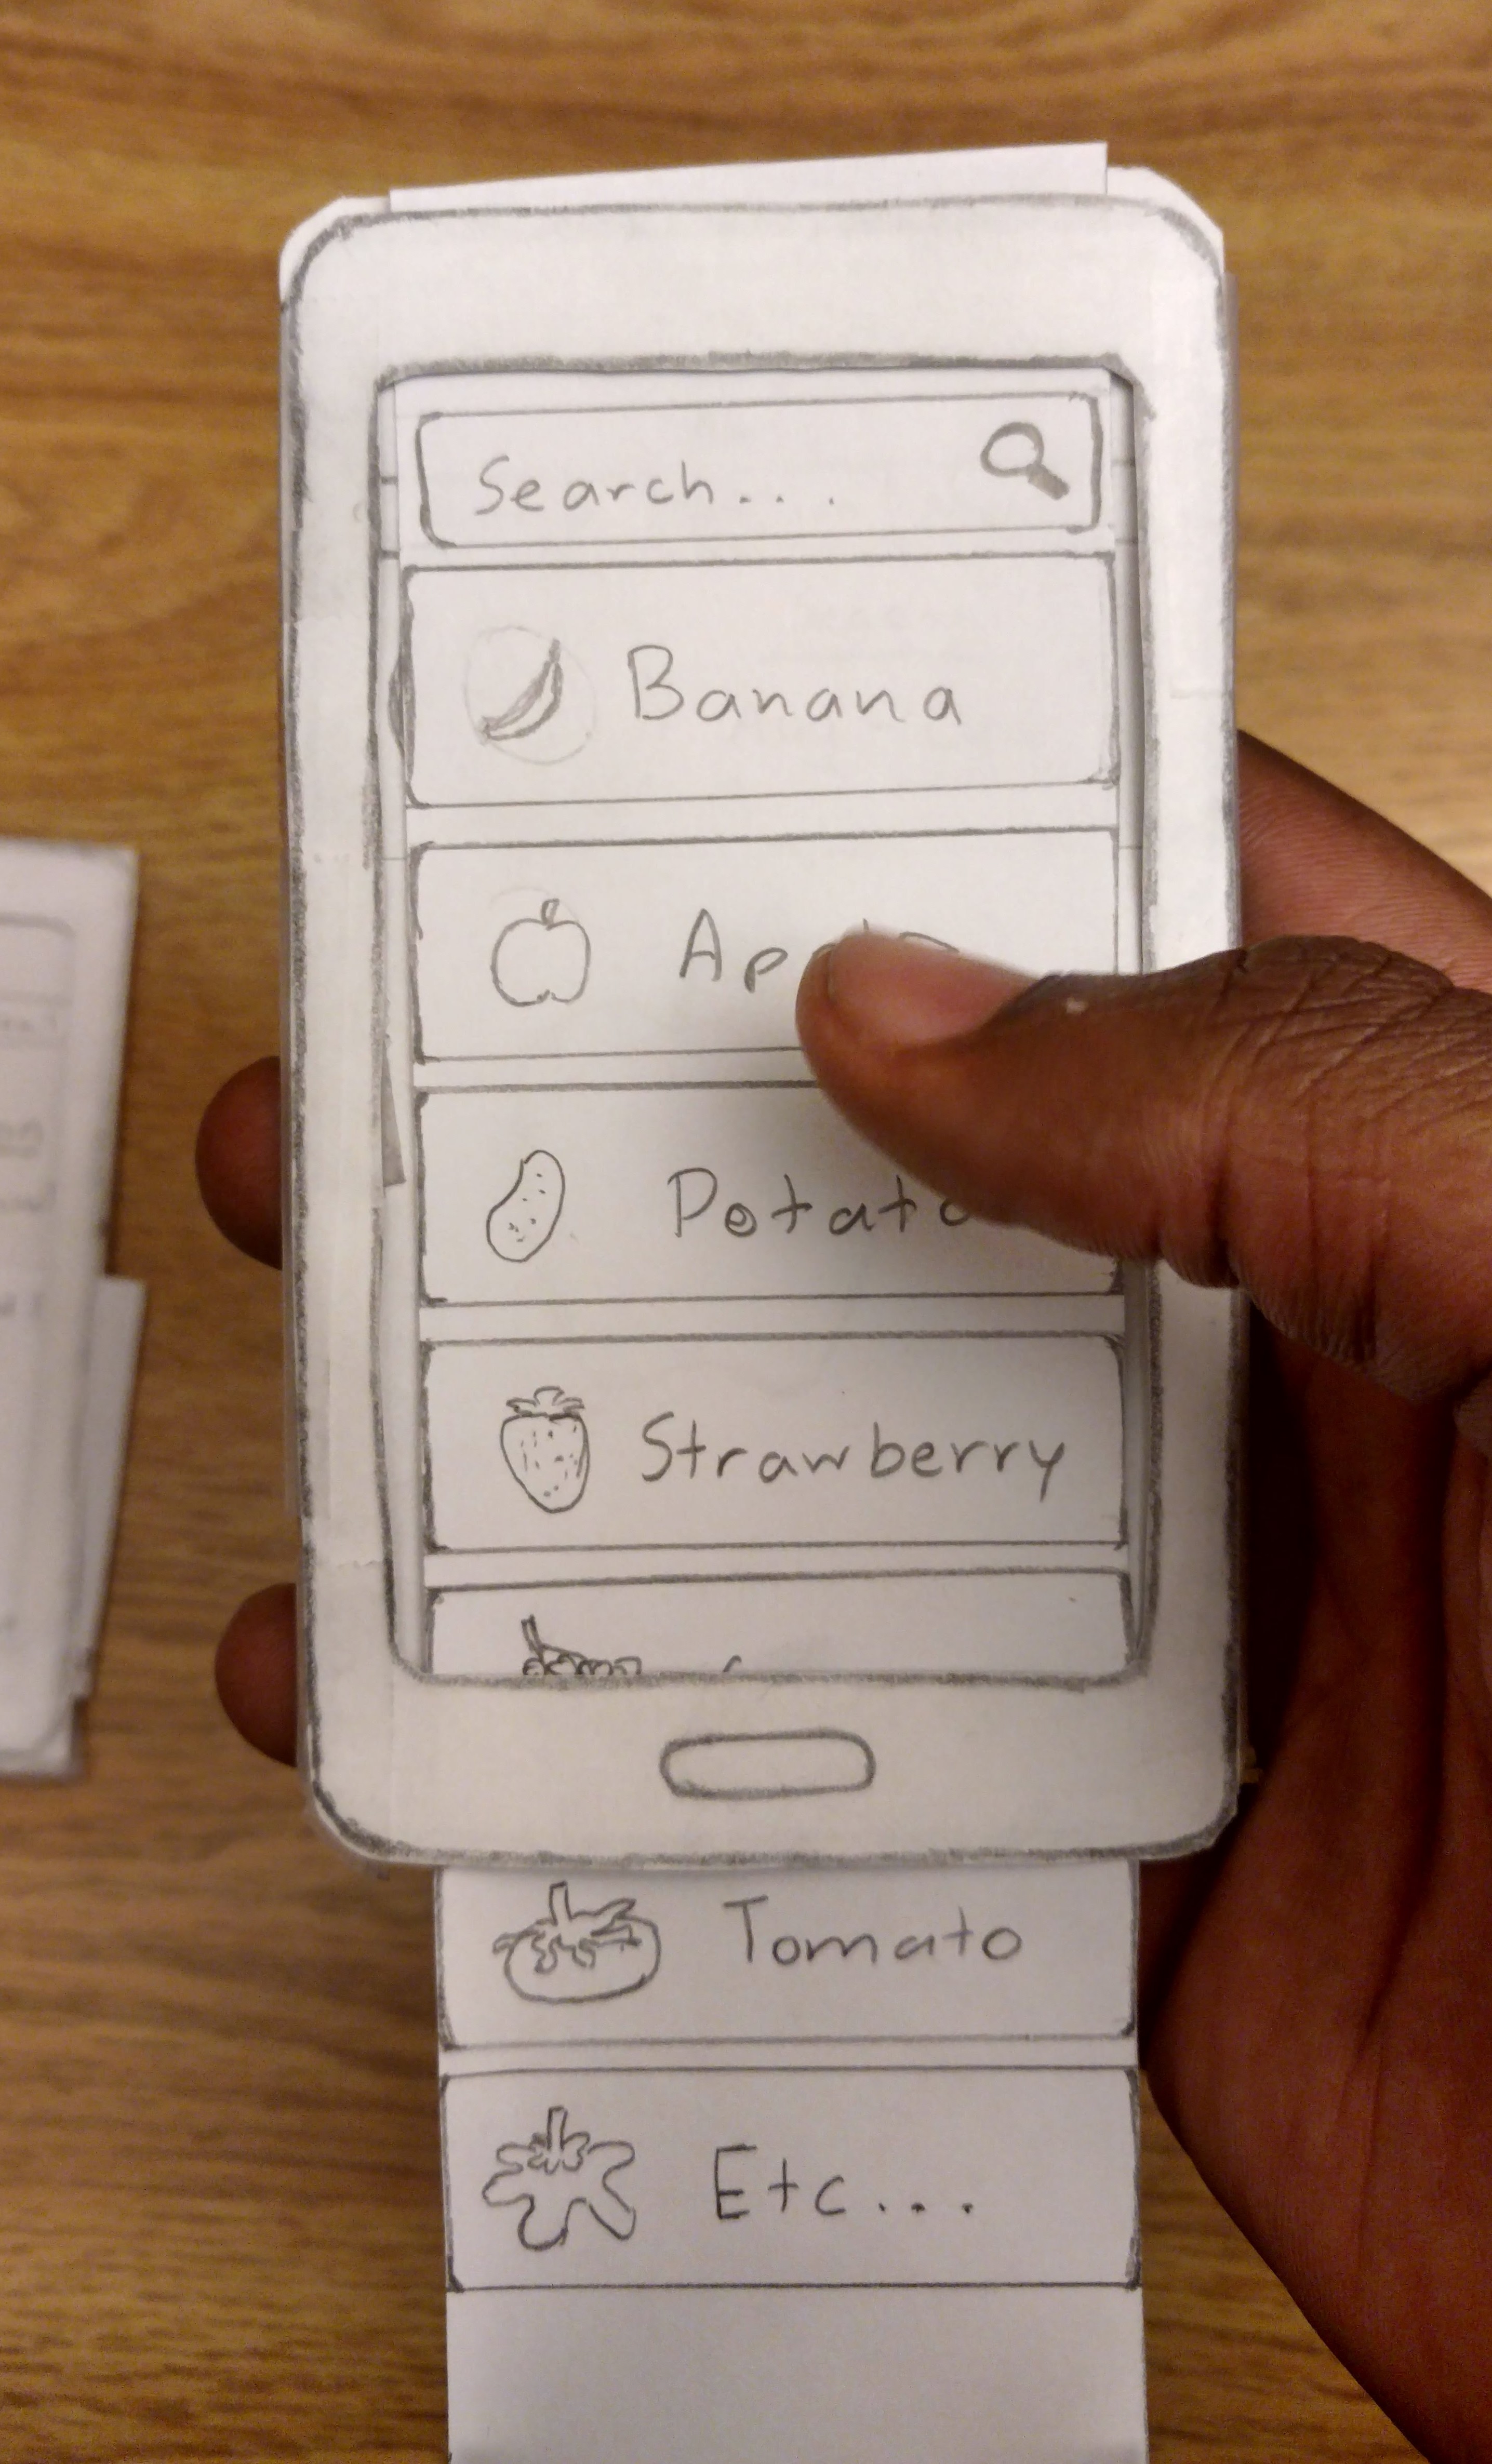 Search...
Banana
Apple
Potato
Strawberry
Tomato
Etc...